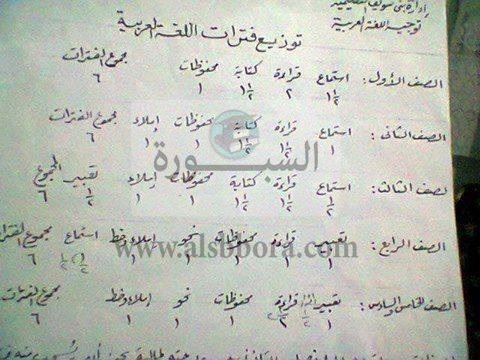 إدارة بنى سويف التعليمية
توجيه اللغة العربية
توزيع فترات اللغة العربية
الصف الأول: استماع قراءة كتابة محفوظات مجموع الفترات
١ ١/٢ ٢ ١ ١/٢ ١ ٦
الصف الثانى: استماع قراءة كتابة محفوظات إملاء مجموع الفترات
١ ١ ١/٢ ١ ١/٢ ١ ١ ٦
السبورة
الصف الثالث: استماع قراءة كتابة محفوظات إملاء تعبير المجموع
١/٢ ١ ١/٢ ١ ١/٢ ١ ١ ١/٢ ٦
الصف الرابع: تعبير قراءة محفوظات نحو إملاء وخط استماع مجموع الفترات
١ ١ ١ ١ ١ ٦
www.alsbbora.com
الصف الخامس والسادس: تعبير قراءة محفوظات نحو إملاء وخط مجموع الفترات
١ ٢ ١ ١ ١ ٦